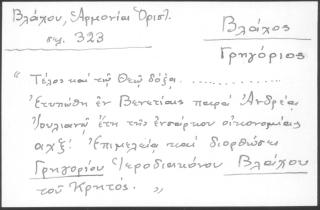 Βλάχου, Ἁρμονία Ὁριστ.
σελ. 323
Βλάχος
Γρηγόριος
"Τέλος καὶ τῷ Θεῷ δόξα..............
Ἐτυπώθη ἐν Βενετίαις παρὰ Ἀνδρέᾳ
Ἰουλιανῷ ἔτη τῆς ἐνσάρκου οἰκονομίας
αχξ! Ἐπιμελείᾳ καὶ διορθώσει
Γρηγορίου Ἱεροδιακόνου Βλάχου
τοῦ Κρητός. "